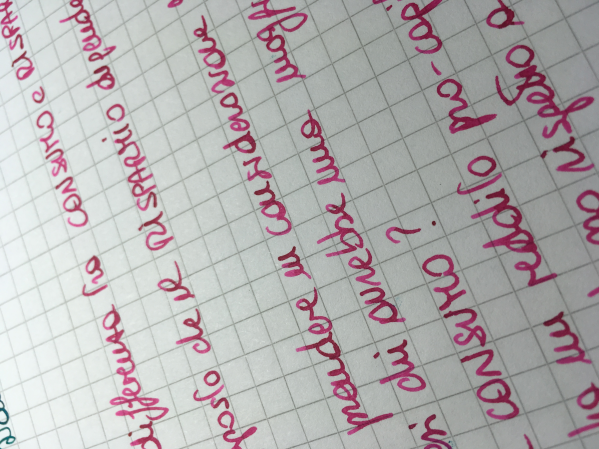 differenza fra CONSUMO e RISPAR
posto che il RISPARMIO dipende
prendere in considerazione
chi avrebbe una magg
- CONSUMO ?
un reddito pro-capi
rispetto a